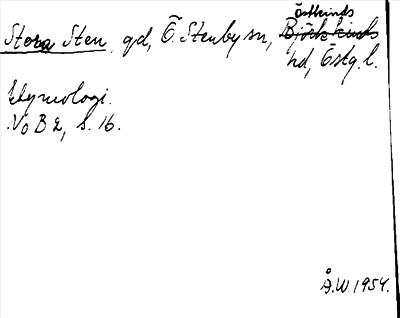 Östkinds
Stora Sten, gd, Ö. Stenby sn, Björkekinds
hd, Östg.l.
Etymologi.
NoB 2, s. 16.
Å.W. 1954.